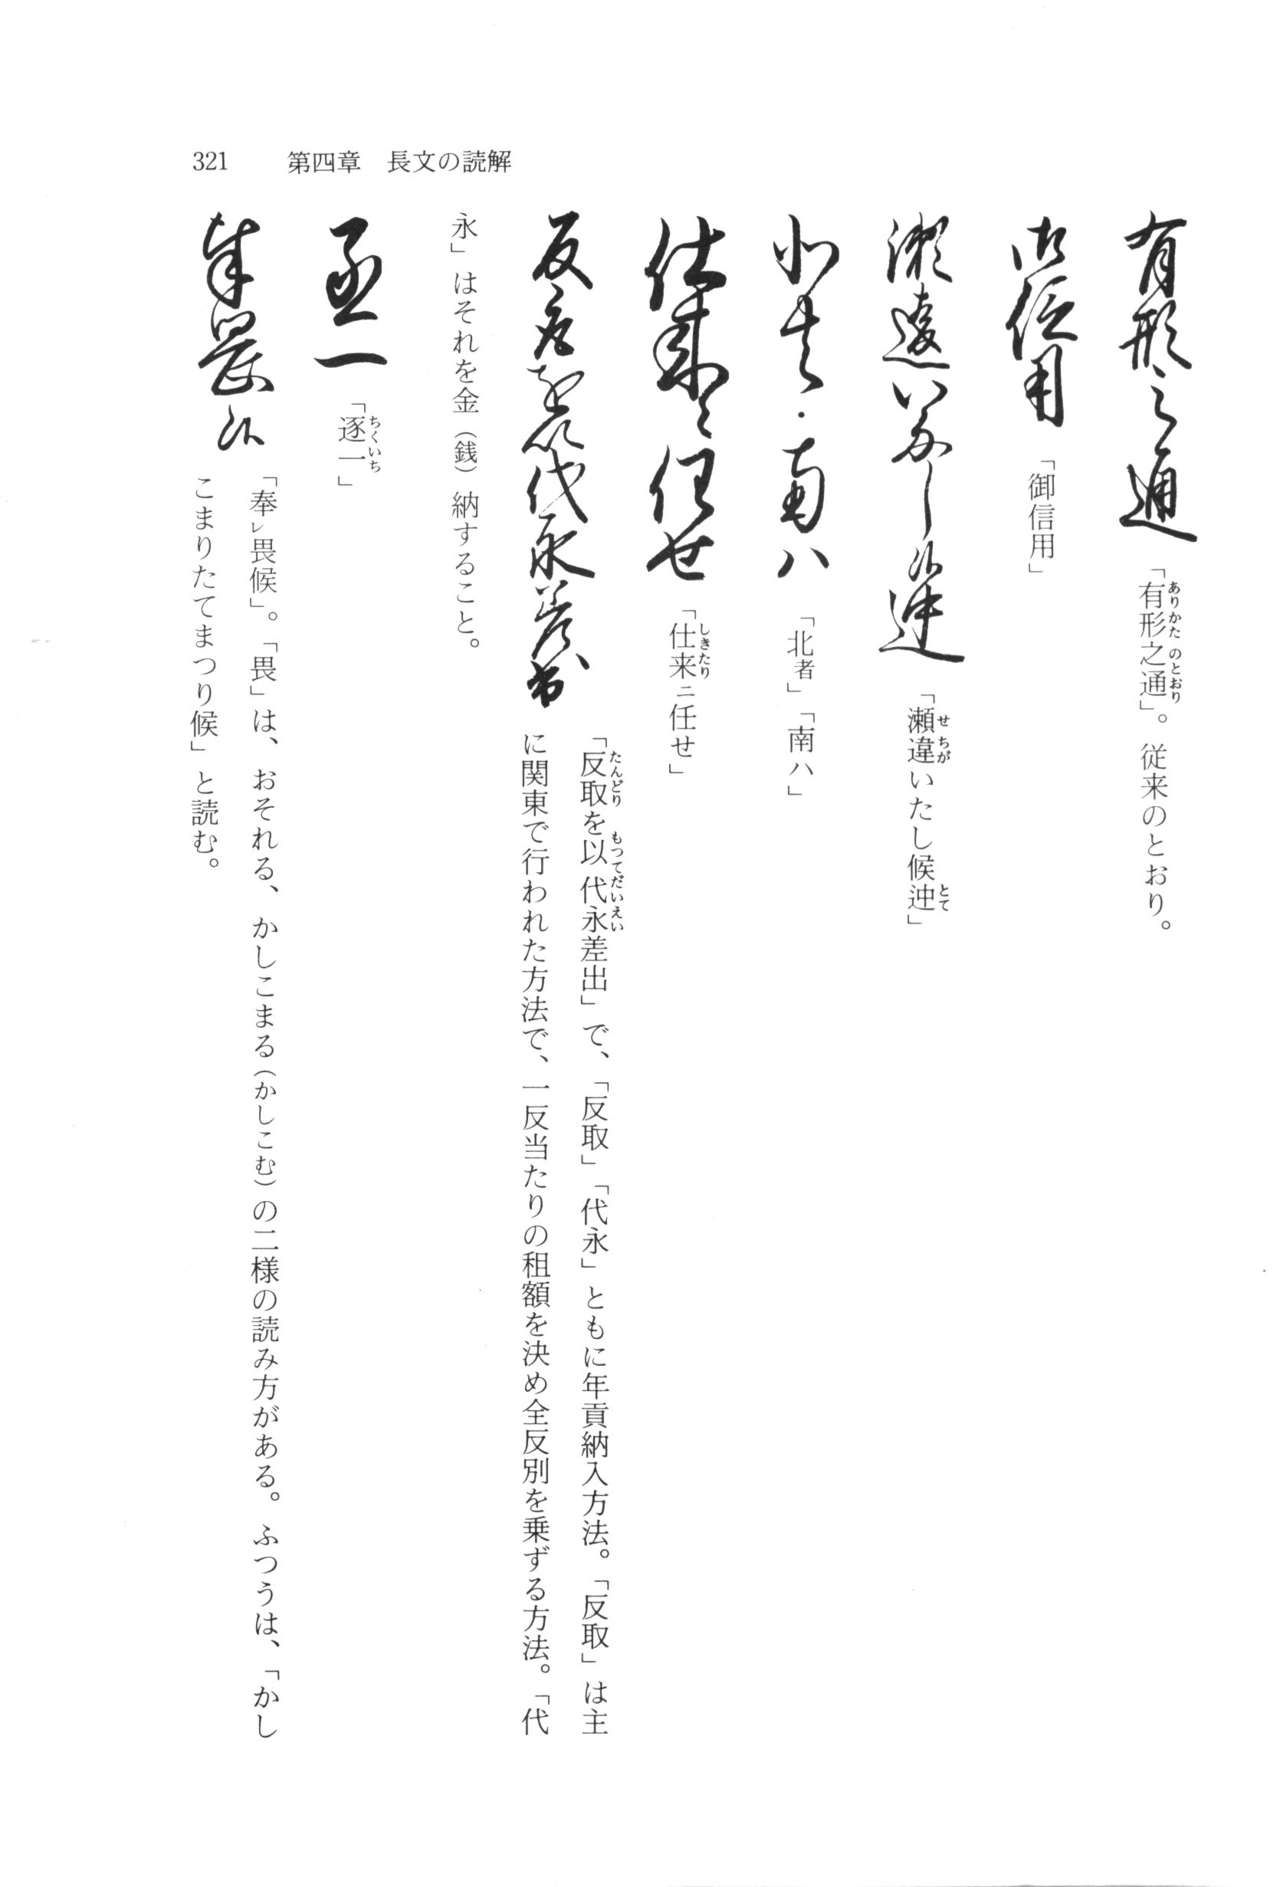 321　第四章　長文の読解
有形之通
「有形之通」。従来のとおり。
御信用
「御信用」
瀬違いたし候迚
「瀬違いたし候迚」
北者・南ハ
「北者」「南ハ」
仕来ニ任せ
「仕来ニ任せ」
反取を以代永差出
「反取を以代永差出」で、「反取」「代永」ともに年貢納入方法。「反取」は主
に関東で行われた方法で、一反当たりの租額を決め全反別を乗ずる方法。「代
永」はそれを金（銭）納すること。
逐一
「逐一」
奉畏候
「奉レ畏候」。「畏」は、おそれる、かしこまる（かしこむ）の二様の読み方がある。ふつうは、「かし
こまりたてまつり候」と読む。